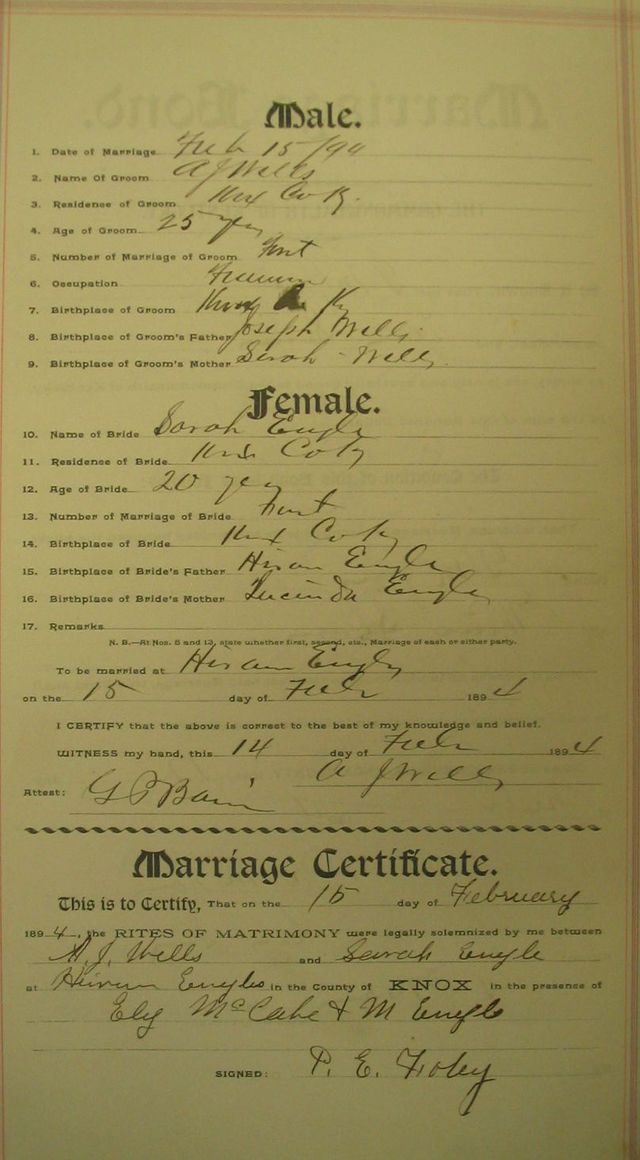 Male.
1. Date of Marriage Feb 15/94
2. Name Of Groom A J Wells
3. Residence of Groom Knx Co Ky.
4. Age of Groom 25 yrs
5. Number of Marriage of Groom First
6. Occupation
7. Birthplace of Groom Knox Ky
8. Birthplace of Groom's Father Joseph Wells
9. Birthplace of Groom's Mother Sarah Wells
Female.
10. Name of Bride Sarah Engle
11. Residence of Bride Knx Co Ky
12. Age of Bride 20 yrs
13. Number of Marriage of Bride First
14. Birthplace of Bride Knx Co Ky
15. Birthplace of Bride's Father Hiram Engle
16. Birthplace of Bride's Mother Lucinda Engle
17. Remarks
N. B.—At Nos. 5 and 13, state whether first, second, etc., Marriage of each or either party.
To be married at Hiram Engles
on the 15 day of Feb 1894
I CERTIFY that the above is correct to the best of my knowledge and belief.
WITNESS my hand, this 14 day of Feb 1894
A J Wells
Attest: G P Bain
Marriage Certificate.
This is to Certify, That on the 15 day of February
1894, the RITES OF MATRIMONY were legally solemnized by me between
A. J. Wells and Sarah Engle
at Hiram Engles in the County of KNOX in the presence of
Ely McCabe & M Engle
SIGNED: P. E. Foley